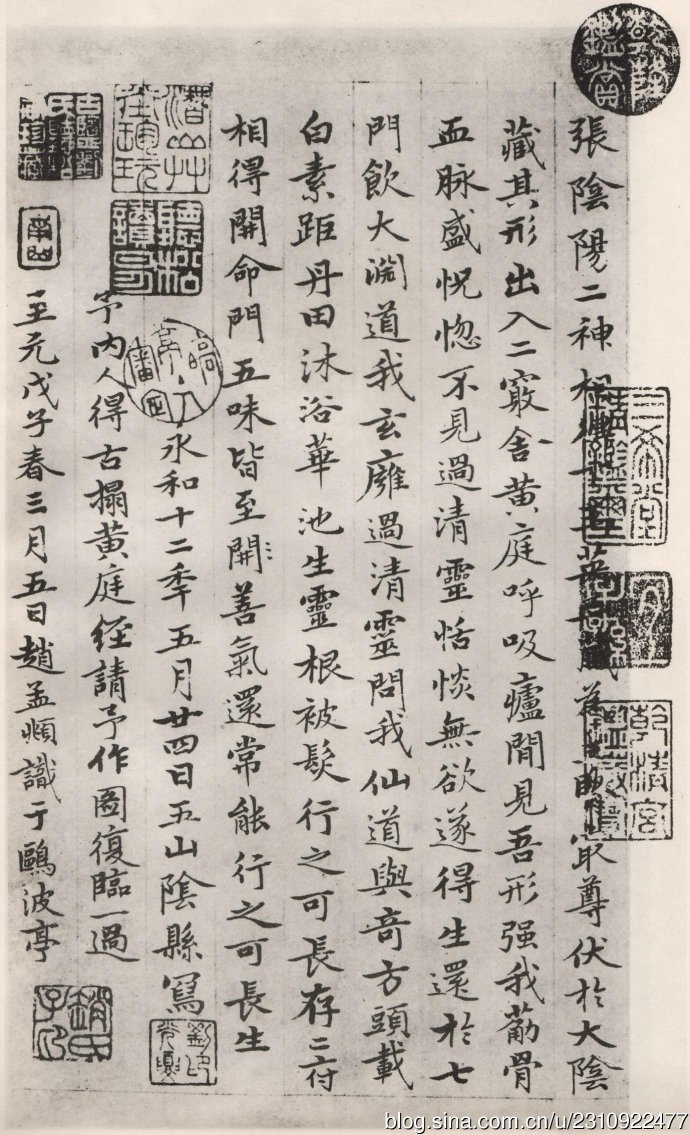 乾隆鑑賞
張陰陽二神相英藏冣尊伏於大陰
三希堂精鑑璽
宜子孫
乾清宮鑑藏寶
藏其形出入二竅舍黄庭呼吸廬間見吾形强我荕骨
血脉盛怳惚不見過清靈恬惔無欲遂得生還於七
門飲大淵道我玄廱過清靈問我仙道與奇方頭載
白素距丹田沐浴華池生靈根被髮行之可長存二府
相得開命門五味皆至開善氣還常能行之可長生
永和十二年五月廿四日五山陰縣寫
予内人得古搨黄庭經請予作圖復臨一過
至元戊子春三月五日趙孟頫識于鷗波亭
趙氏子昂
blog.sina.com.cn/u/2310922477